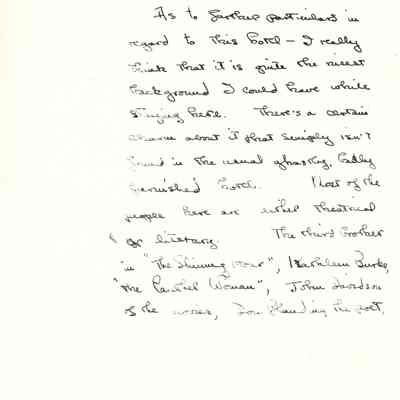 As to further particulars in
regard to this hotel – I really
think that it is quite the nicest
background I could have while
staying here. There's a certain
charm about it that simply isn't
found in the usual ghastly, badly
furnished hotel. Most of the
people here are either theatrical
or literary. The third brother
in "The Shining Hour", Kathleen Burke,
"the Panther Woman", John Davidson
of the movies, Don Blanding the poet,